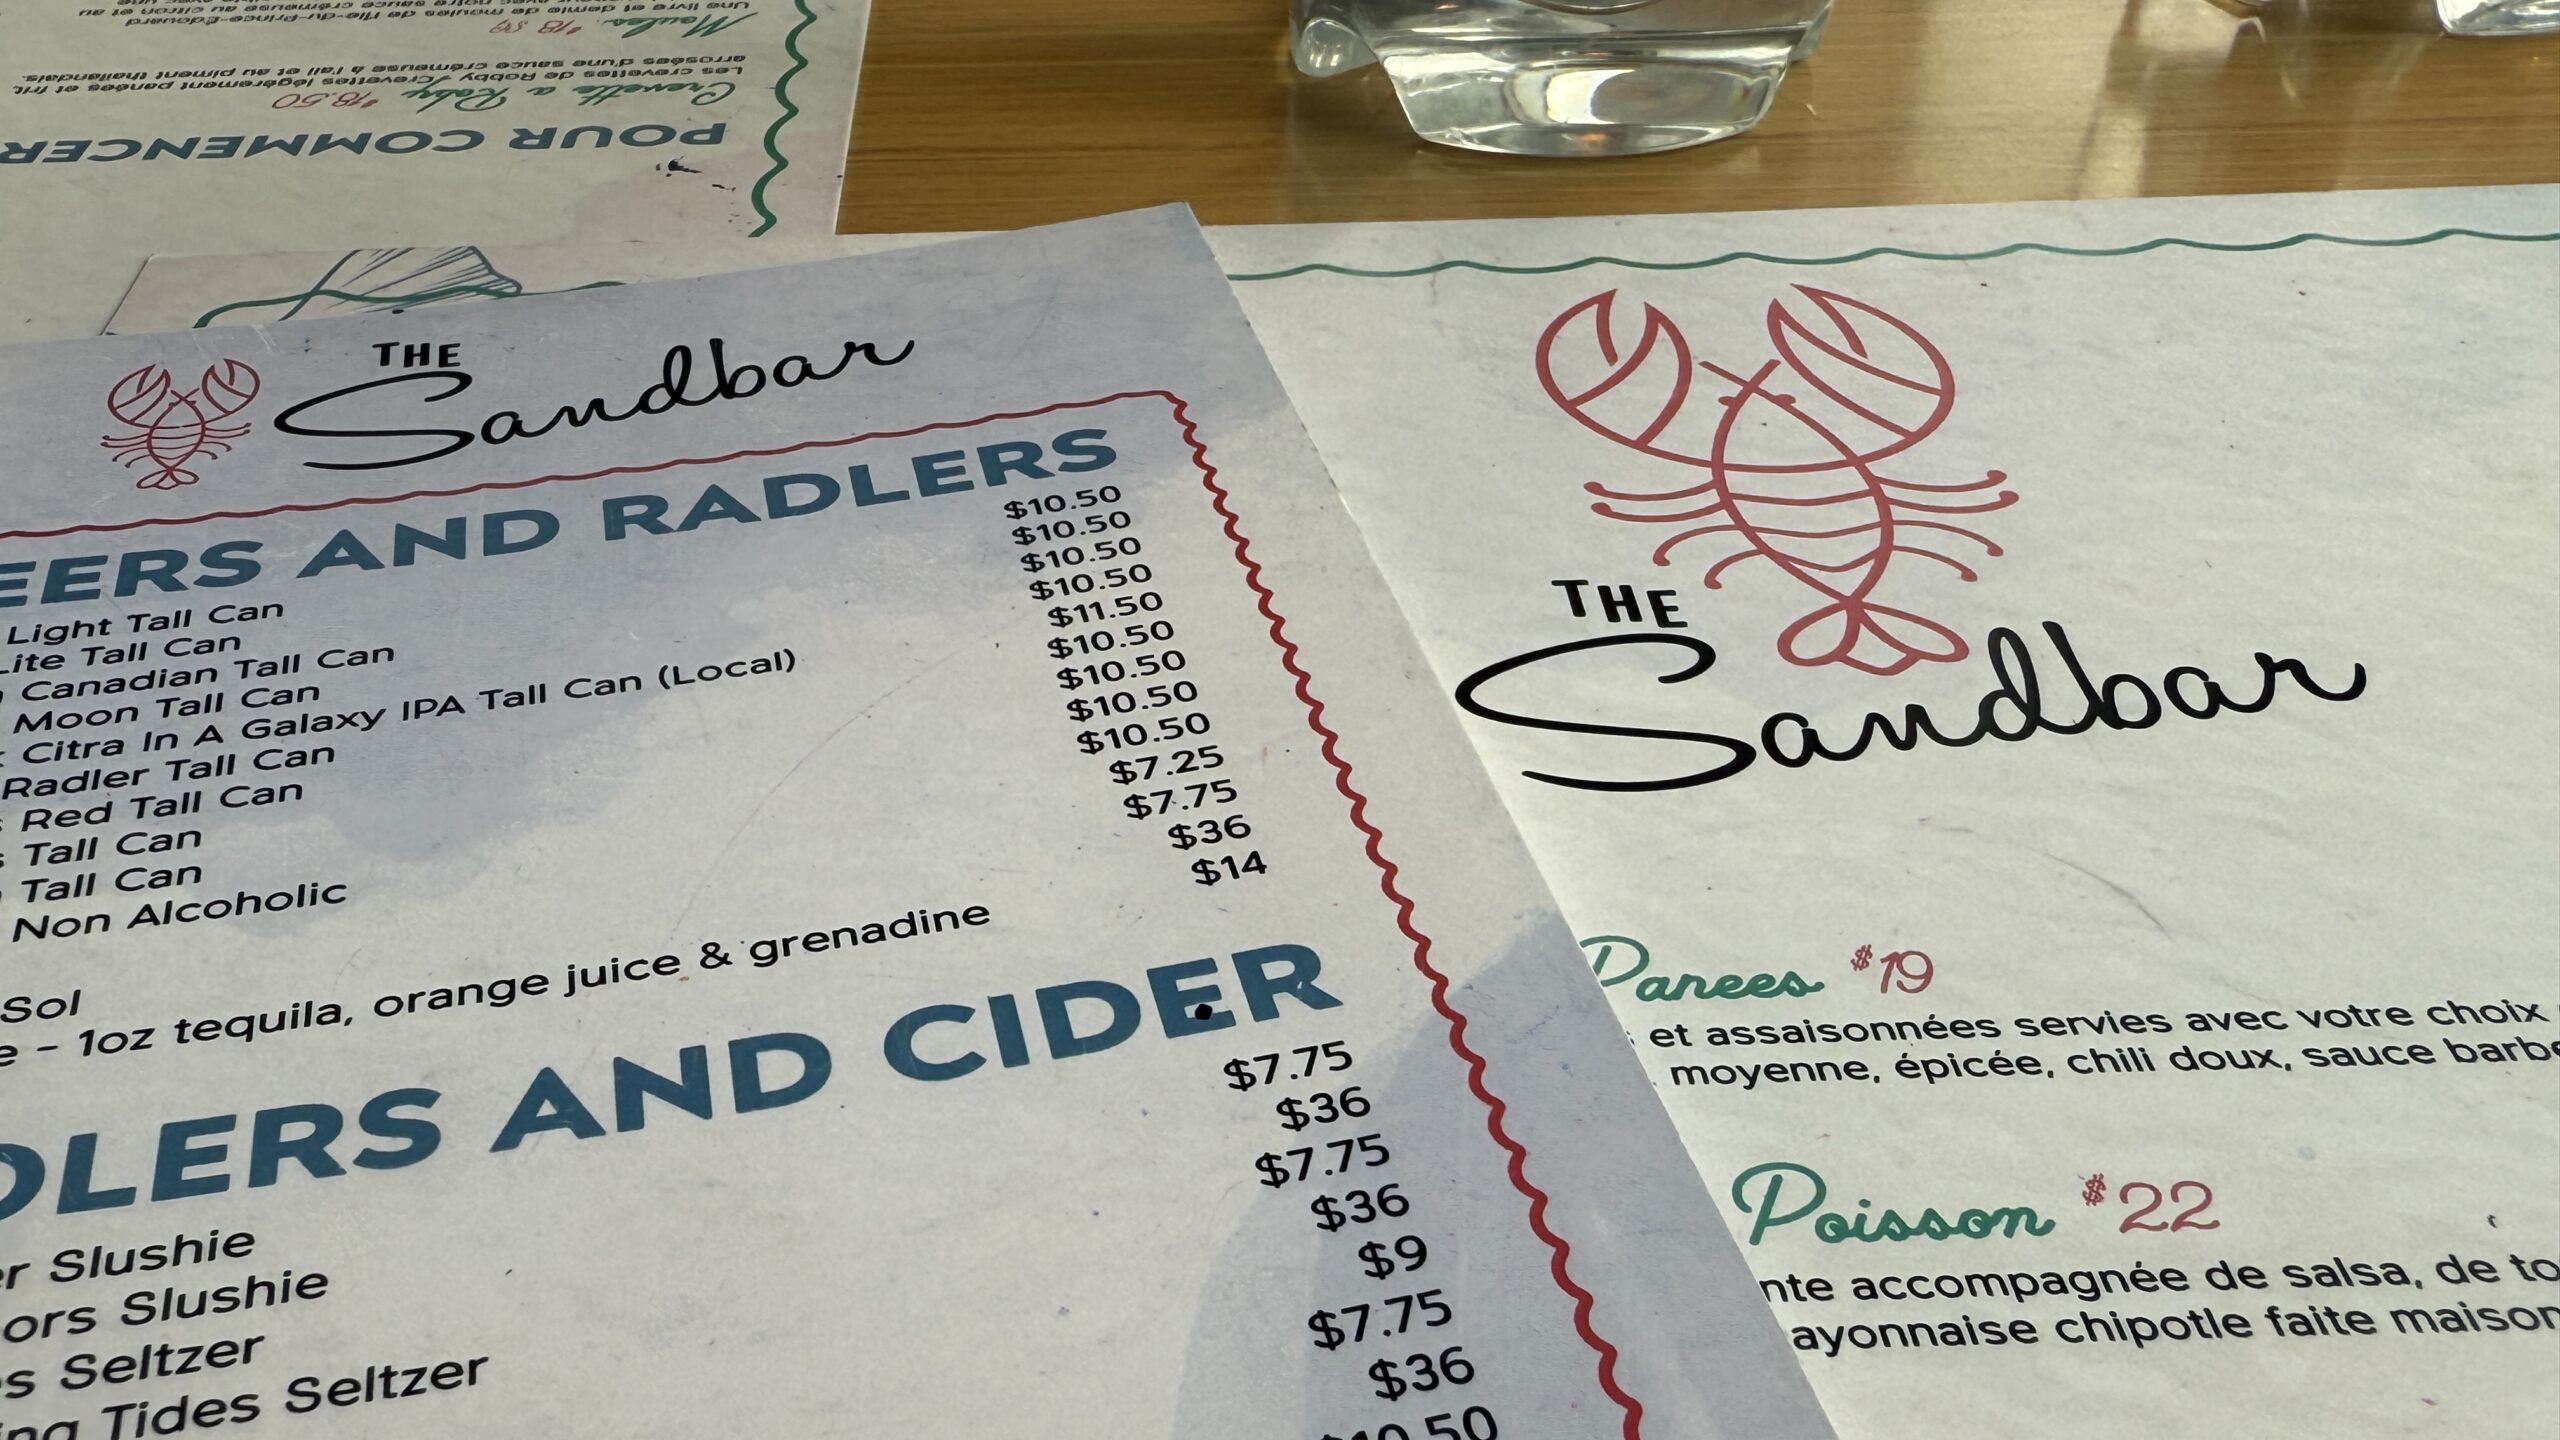 POUR COMMENCER
Crevette a Roby $18.50
Les crevettes de Robby ! Crevettes légèrement panées et frit,
arrosées d'une sauce crémeuse à l'ail et au piment thaïlandais.
Moules
Une livre et demie de moules de l'Île-du-Prince-Édouard
THE
Sandbar
EERS AND RADLERS
Light Tall Can $10.50
Lite Tall Can $10.50
Canadian Tall Can $10.50
Moon Tall Can $10.50
Citra In A Galaxy IPA Tall Can (Local) $11.50
Radler Tall Can $10.50
Red Tall Can $10.50
Tall Can $10.50
Tall Can $10.50
Non Alcoholic $7.25
$7.75
Sol $36
- 1oz tequila, orange juice & grenadine $14
DLERS AND CIDER
er Slushie $7.75
ors Slushie $36
s Seltzer $7.75
ing Tides Seltzer $36
$9
$7.75
$36
THE
Sandbar
Panees $19
et assaisonnées servies avec votre choix
moyenne, épicée, chili doux, sauce barbe
Poisson $22
nte accompagnée de salsa, de to
ayonnaise chipotle faite maison